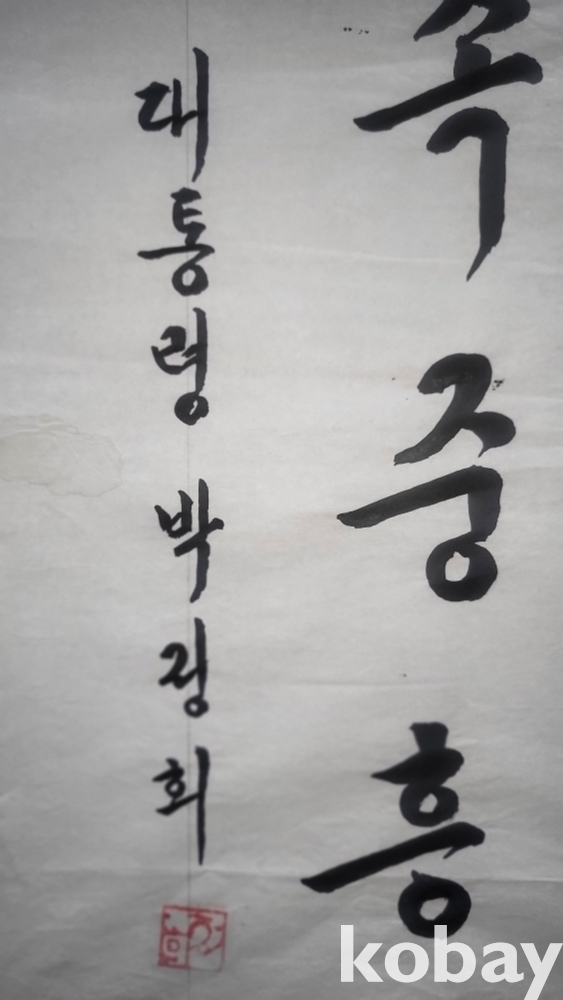 족중흥
대통령 박정희
kobay